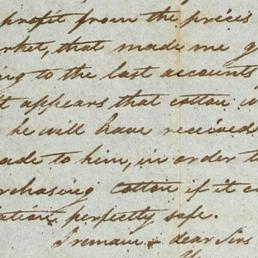 profit from the prices
rket, that made me g
ing to the last accounts
t appears, that cotton w
he will have received
ade to him, in order t
rchasing cotton if it c
ation perfectly safe.
I remain dear Sirs